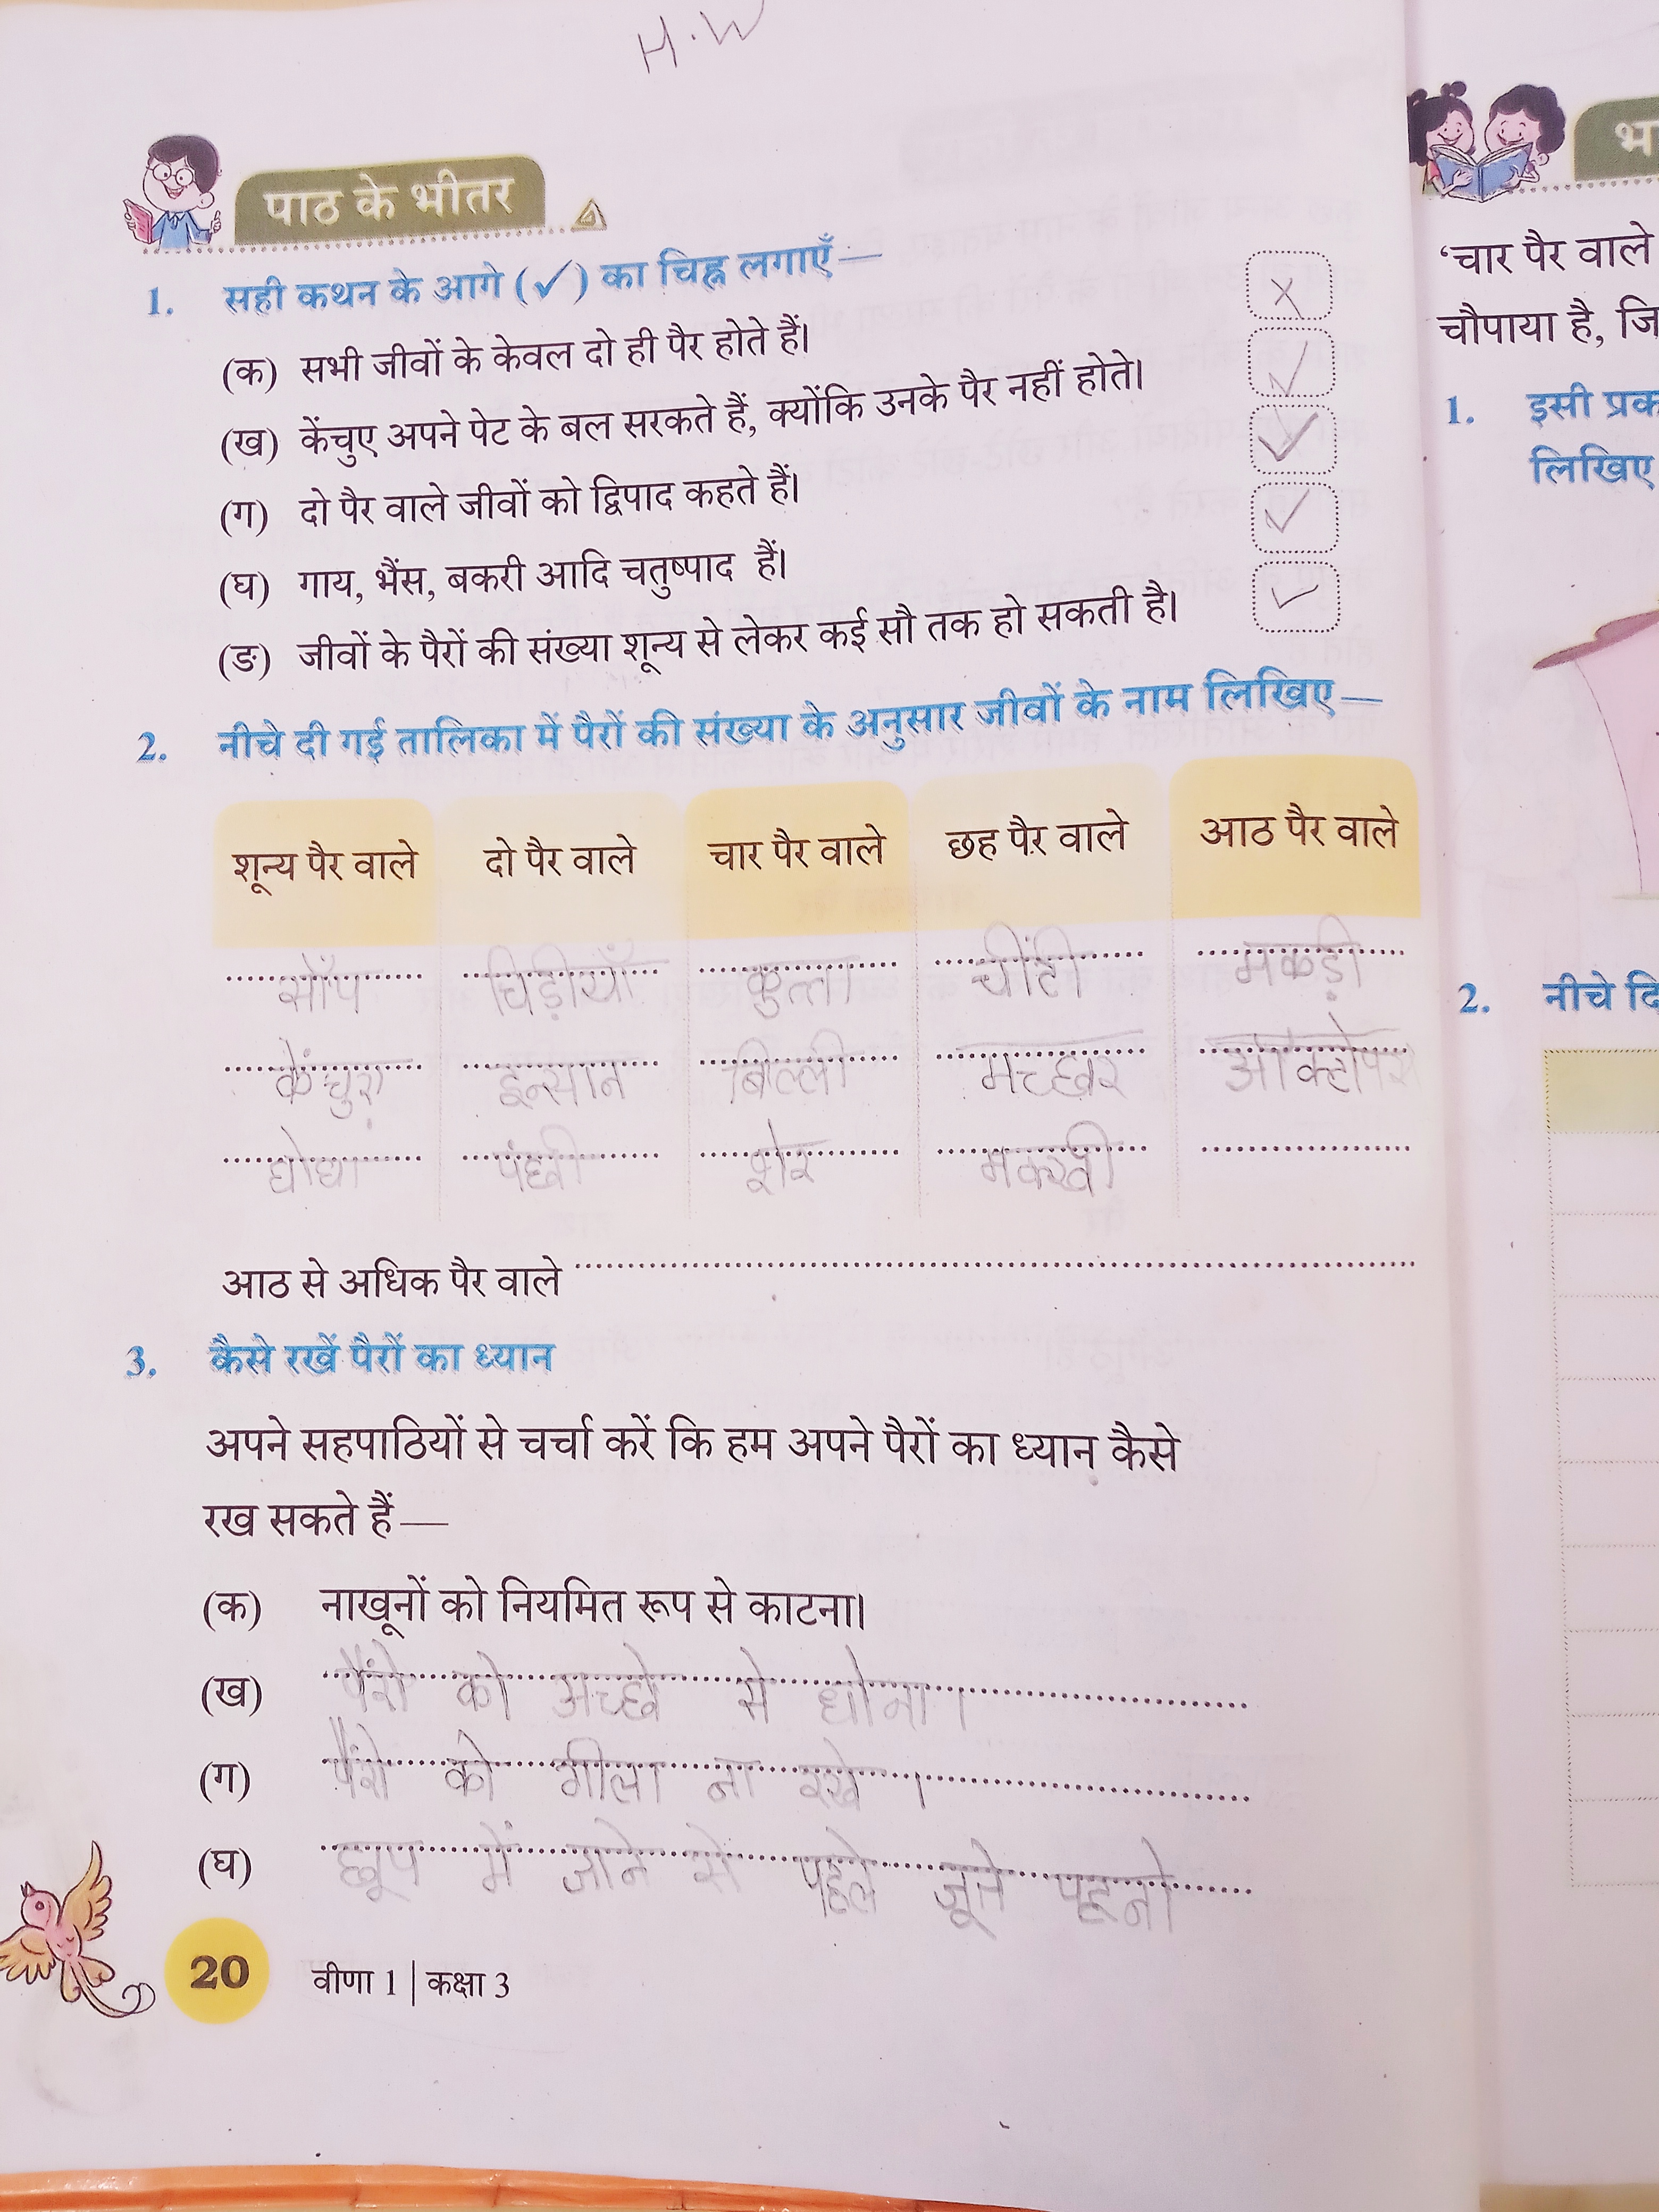 H.W
पाठ के भीतर
1. सही कथन के आगे (✓) का चिह्न लगाएँ—
(क) सभी जीवों के केवल दो ही पैर होते हैं। ×
(ख) केंचुए अपने पेट के बल सरकते हैं, क्योंकि उनके पैर नहीं होते। ✓
(ग) दो पैर वाले जीवों को द्विपाद कहते हैं। ✓
(घ) गाय, भैंस, बकरी आदि चतुष्पाद हैं। ✓
(ङ) जीवों के पैरों की संख्या शून्य से लेकर कई सौ तक हो सकती है। ✓
2. नीचे दी गई तालिका में पैरों की संख्या के अनुसार जीवों के नाम लिखिए—
शून्य पैर वाले दो पैर वाले चार पैर वाले छह पैर वाले आठ पैर वाले
साँप चिड़ीयाँ कुत्ता चींटी मकड़ी
केंचुए इन्सान बिल्ली मच्छर ऑक्टोपस
घोघा पंछी शेर मक्खी
आठ से अधिक पैर वाले
3. कैसे रखें पैरों का ध्यान
अपने सहपाठियों से चर्चा करें कि हम अपने पैरों का ध्यान कैसे
रख सकते हैं—
(क) नाखूनों को नियमित रूप से काटना।
(ख) पैंरो को अच्छे से धोना।
(ग) पैंरो को गीला ना रखे।
(घ) में जाने से पहले जूते पहनो
20 वीणा 1 | कक्षा 3
भ
‘चार पैर वाले
चौपाया है, जि
1. इसी प्रक
लिखिए
2. नीचे दि